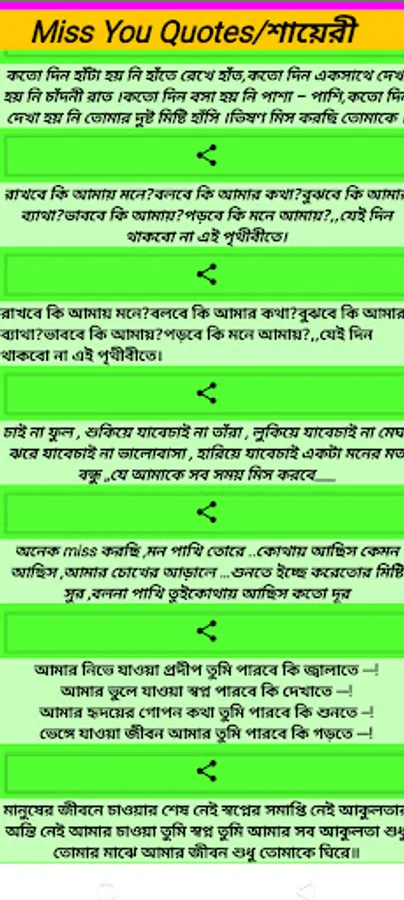 Miss You Quotes/শায়েরী
কতো দিন হাঁটা হয় নি হাঁতে রেখে হাঁত,কতো দিন একসাথে দেখ
হয় নি চাঁদনী রাত ।কতো দিন বসা হয় নি পাশা – পাশি,কতো দি
দেখা হয় নি তোমার দুষ্ট মিষ্টি হাঁসি ।ভিষণ মিস করছি তোমাকে ।
রাখবে কি আমায় মনে?বলবে কি আমার কথা?বুঝবে কি আমার
ব্যাথা?ভাববে কি আমায়?পড়বে কি মনে আমায়?,,যেই দিন
থাকবো না এই পৃথীবীতে।
রাখবে কি আমায় মনে?বলবে কি আমার কথা?বুঝবে কি আমার
ব্যাথা?ভাববে কি আমায়?পড়বে কি মনে আমায়?,,যেই দিন
থাকবো না এই পৃথীবীতে।
চাই না ফুল , শুকিয়ে যাবেচাই না তাঁরা , লুকিয়ে যাবেচাই না মেঘ
ঝরে যাবেচাই না ভালোবাসা , হারিয়ে যাবেচাই একটা মনের মত
বন্ধু ,,যে আমাকে সব সময় মিস করবে___
অনেক miss করছি ,মন পাখি তোরে ..কোথায় আছিস কেমন
আছিস ,আমার চোখের আড়ালে ...শুনতে ইচ্ছে করেতোর মিষ্টি
সুর ,বলনা পাখি তুইকোথায় আছিস কতো দূর
আমার নিভে যাওয়া প্রদীপ তুমি পারবে কি জ্বালাতে —!
আমার ভুলে যাওয়া স্বপ্ন পারবে কি দেখাতে —!
আমার হৃদয়ের গোপন কথা তুমি পারবে কি শুনতে —!
ভেঙ্গে যাওয়া জীবন আমার তুমি পারবে কি গড়তে —!
মানুষের জীবনে চাওয়ার শেষ নেই স্বপ্নের সমাপ্তি নেই আকুলতার
অন্তি নেই আমার চাওয়া তুমি স্বপ্ন তুমি আমার সব আকুলতা শুধ
তোমার মাঝে আমার জীবন শুধু তোমাকে ঘিরে॥